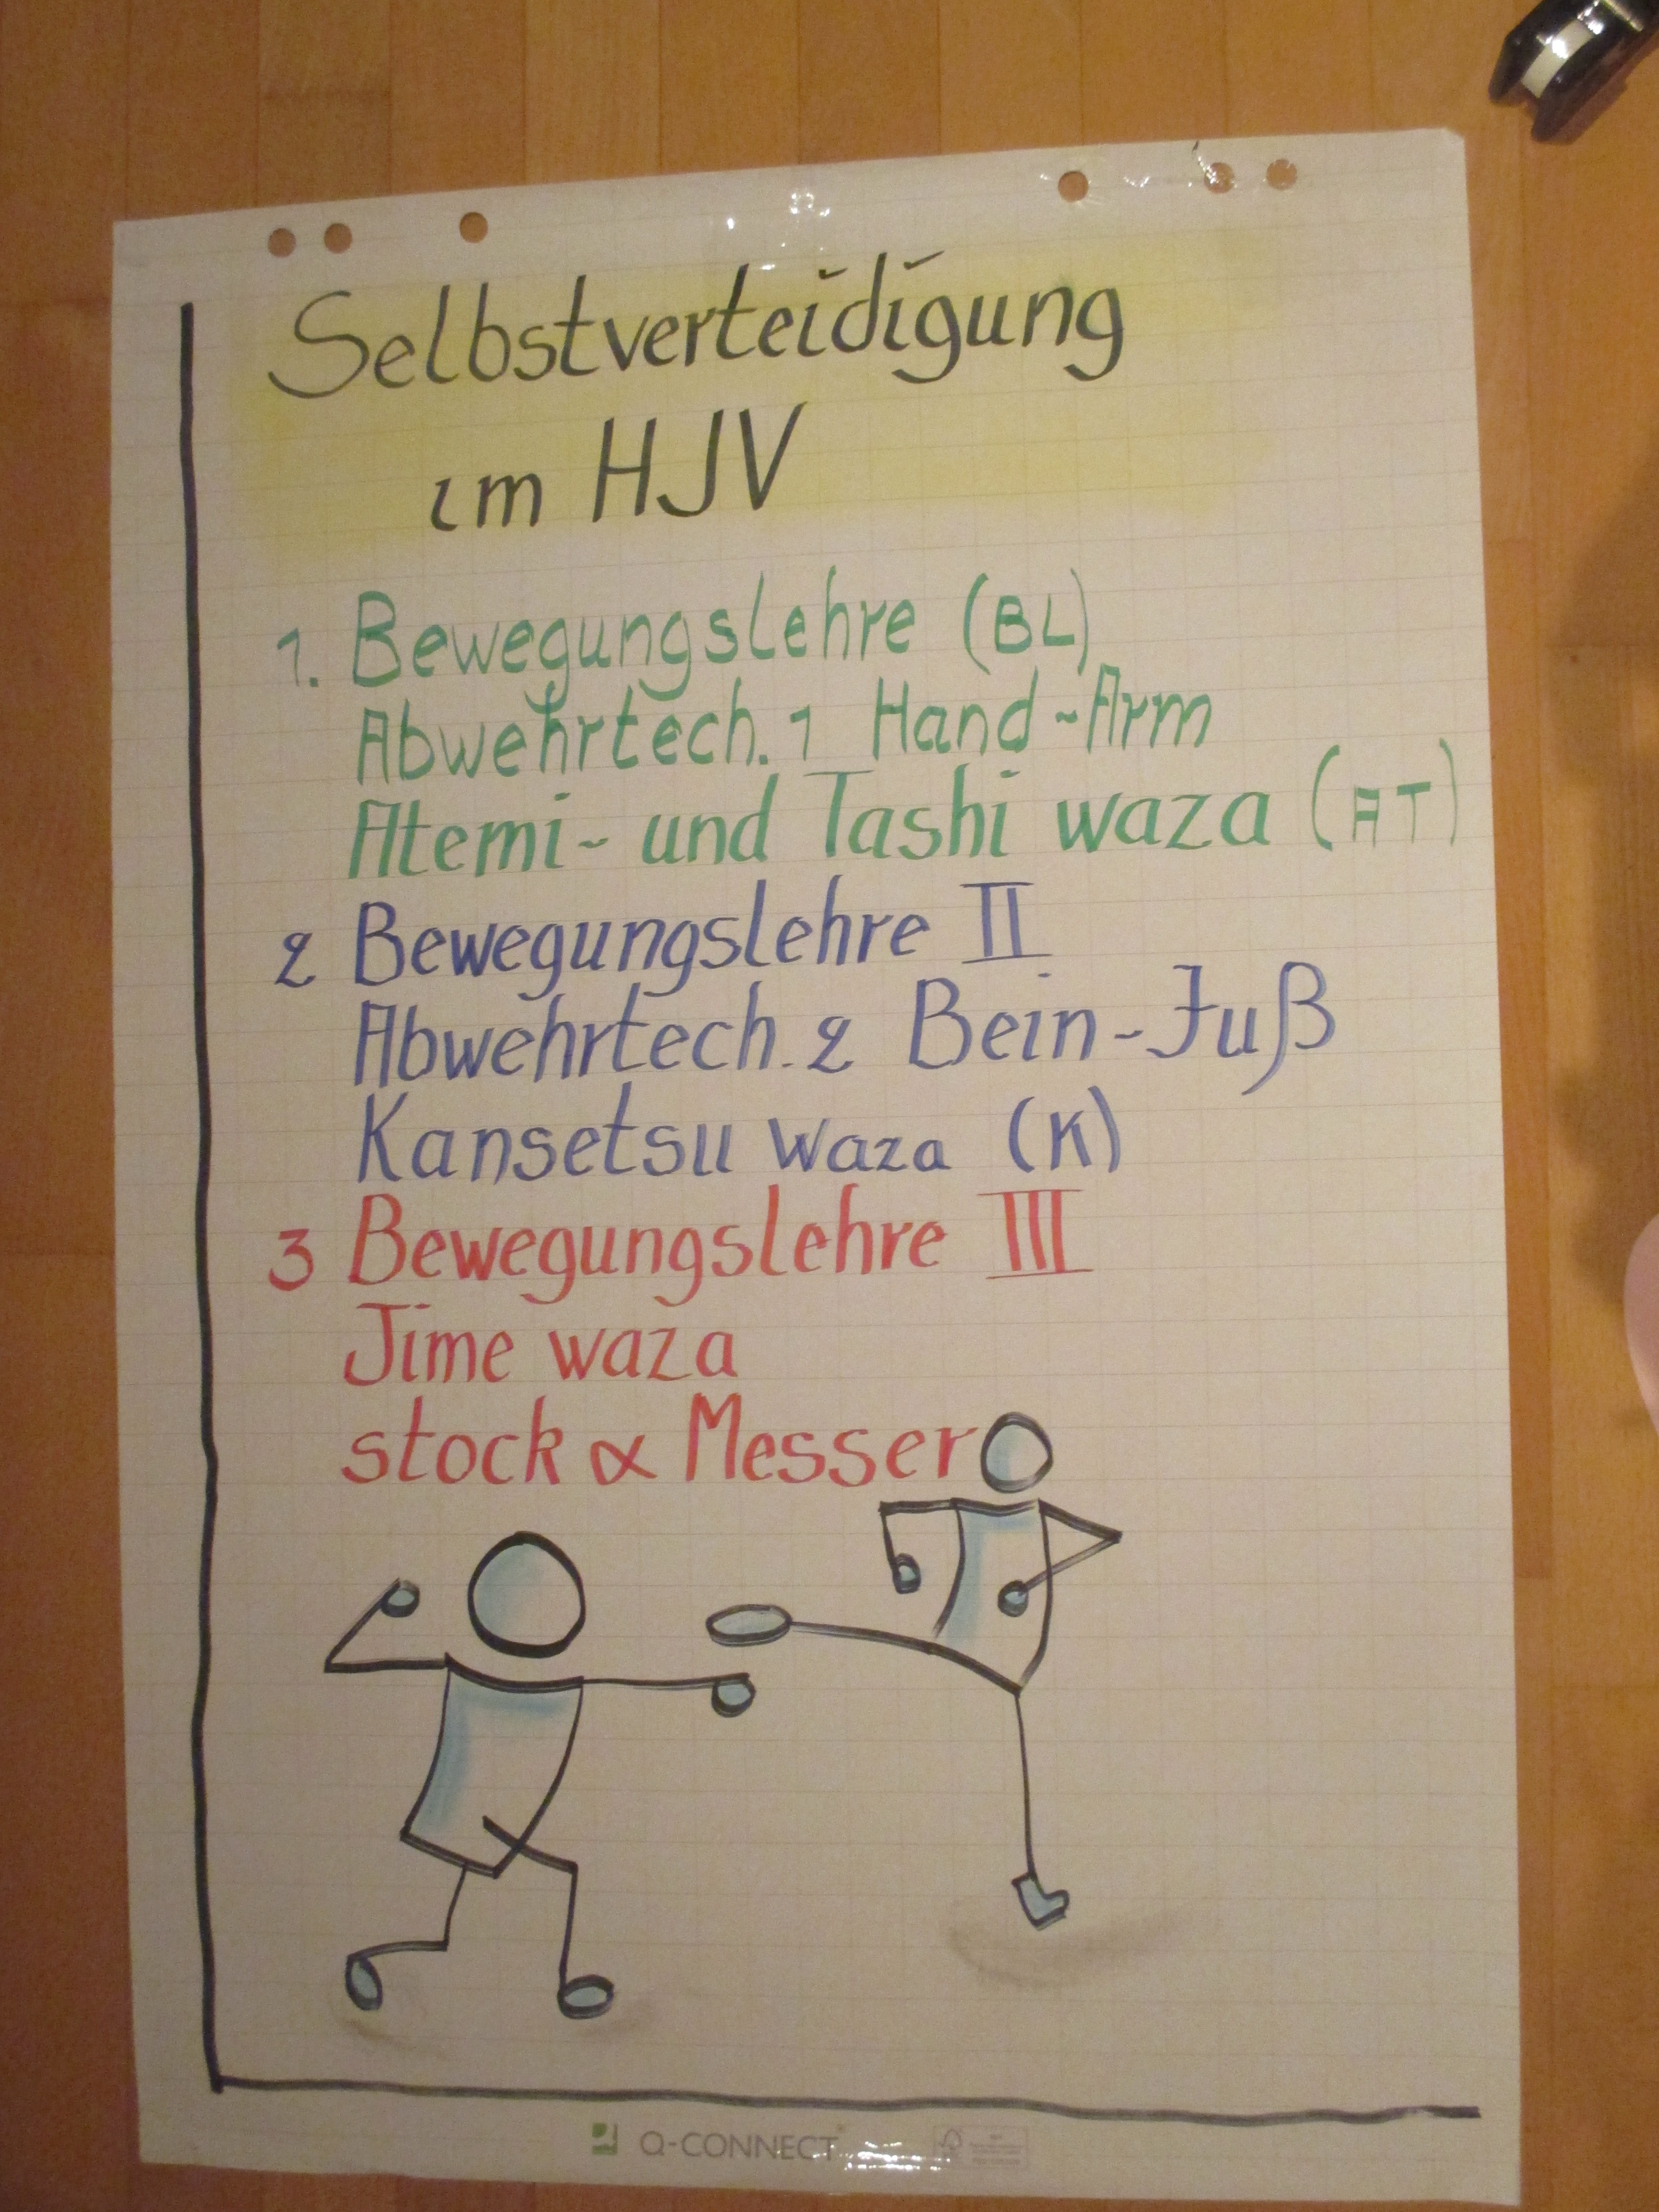 Selbstverteidigung
im HJV
1. Bewegungslehre (BL)
Abwehrtech. 1 Hand-Arm
Atemi- und Tashi waza (AT)
2 Bewegungslehre II
Abwehrtech. 2 Bein-Fuß
Kansetsu waza (K)
3 Bewegungslehre III
Jime waza
stock & Messer
Q-CONNECT